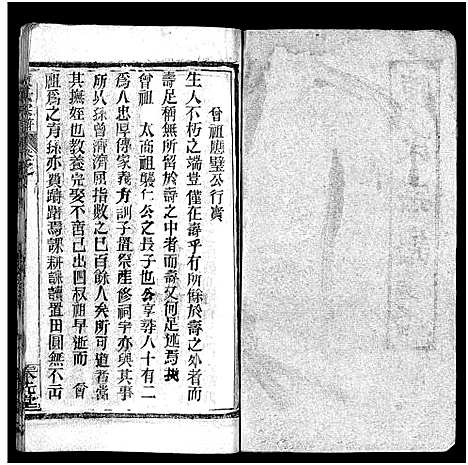 曾祖應璧公行實
生人不朽之端豈僅在壽乎有所餘於壽之外者而
壽足稱無所留於壽之中者而壽又何足述焉我
曾祖 太商祖襲仁公之長子也公享壽八十有二
為人忠厚傳家義方訓子置祭產修祠宇亦與其事
所以孫曾濟濟屈指數之已百餘人矣所可道者當
其撫姪也教養完娶不啻己出四叔祖早逝而 曾
祖為之育孫亦費躊躇焉課耕課讀置田園無不両